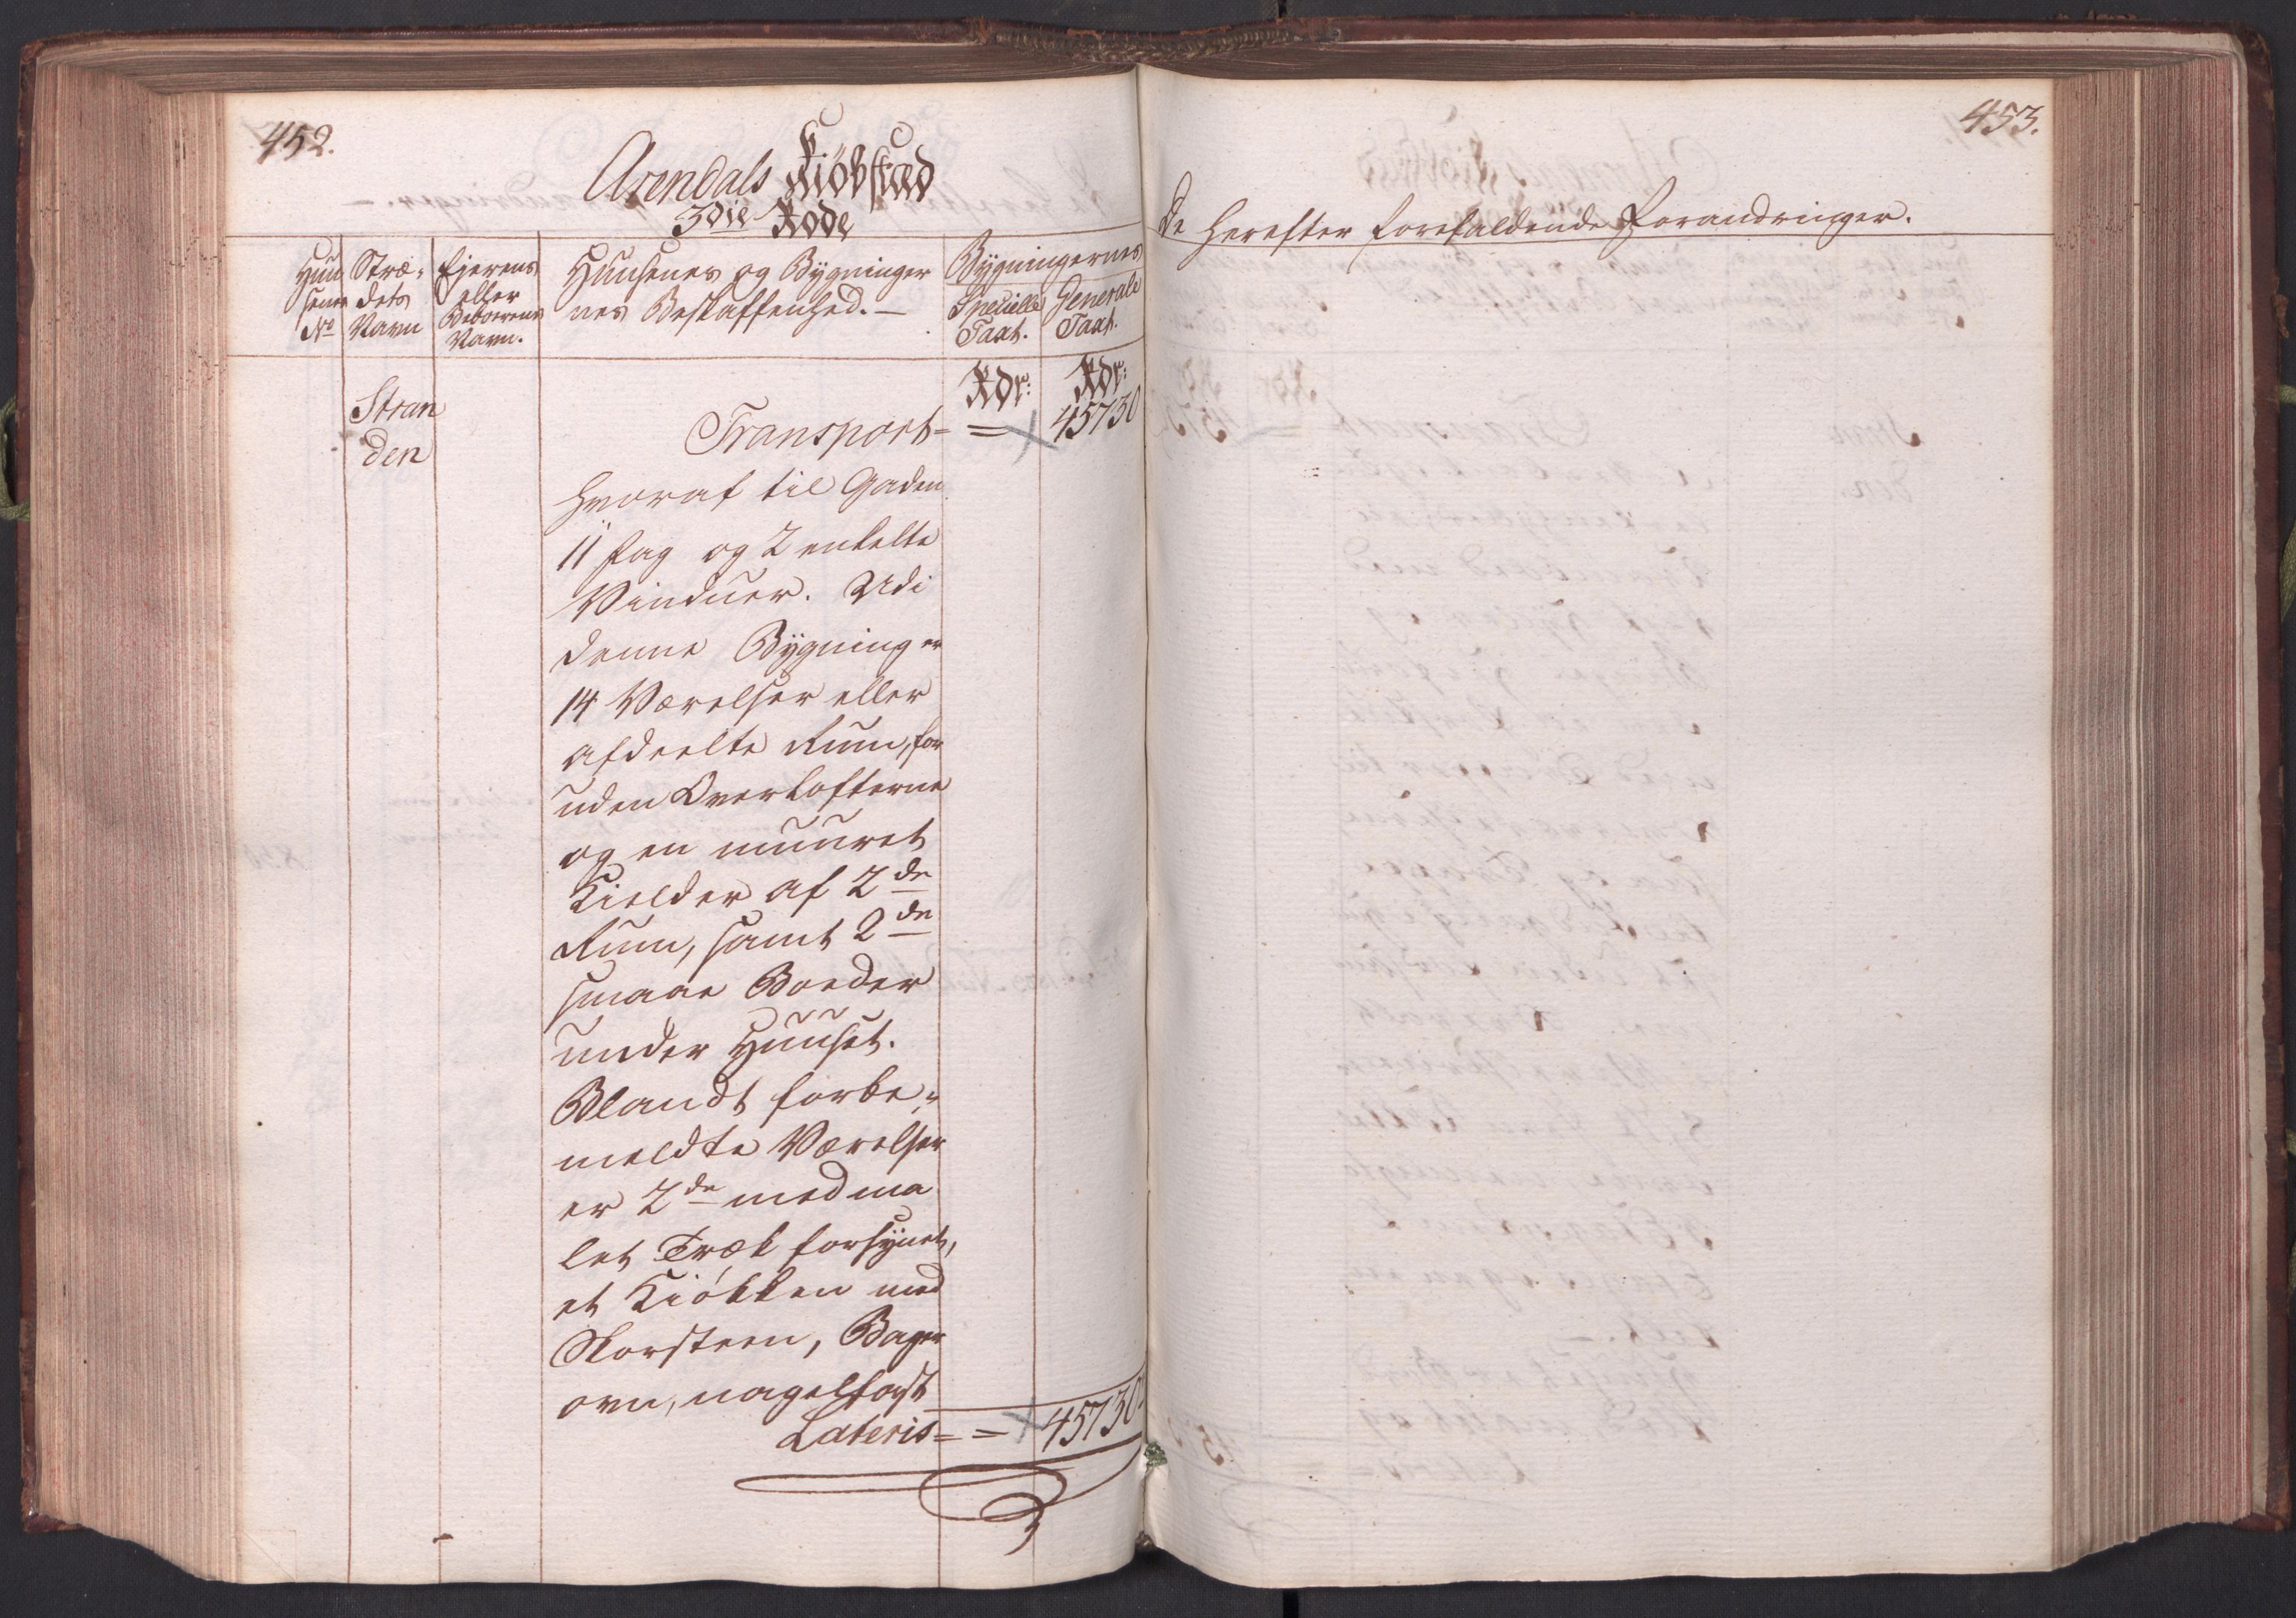 452.
Arendals Kiöbstæd
3die Rode
Huu
senes
No
Stræ-
dets
Navn
Ejerens
eller
Beboerens
Navn.
Huusenes og Bygninger
nes Beskaffenhed. —
Bygningernes
Specielle
Taxt.
Generale
Taxt.
Rdr:
Rdr:
Stran
den
Transport = = 45730
hvoraf til Gaden
11 fag og 2 enkelte
Vinduer. Udi
denne Bygning er
14 Værelser eller
afdeelte Rum, for
uden Overlofterne
og en muuret
Kielder af 2de
Rum, samt 2de
smaae Boeder
under Huuset.
Blandt forbe-
meldte Værelser
er 2de med ma
let Træk forsynet,
et Kiökken med
Skorsteen, Bager
ovn, nagelfast
Lateris = = 45730.
453.
De herefter forefaldende Forandringer.